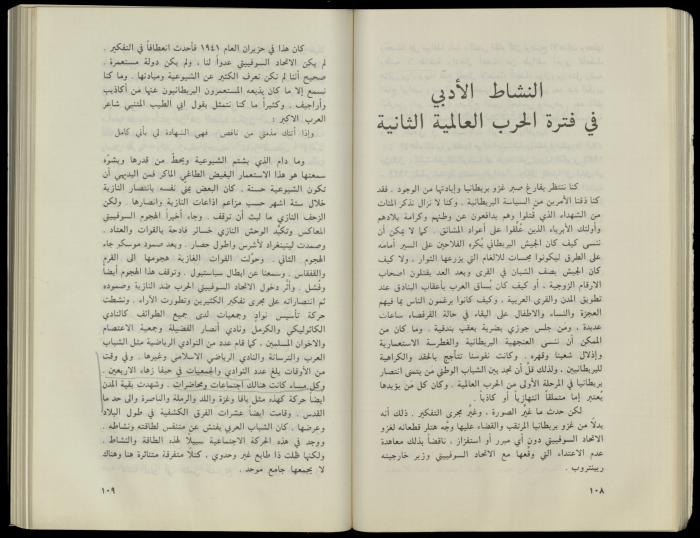 النشاط الأدبي
في فترة الحرب العالمية الثانية
كنا ننتظر بفارغ صبر غزو بريطانيا وإبادتها من الوجود . فقد
كنا ذقنا الأمرين من السياسة البريطانية . وكنا لا نزال نذكر المئات
من الشهداء الذي قتلوا وهم يدافعون عن وطنهم وكرامة بلادهم
وأولئك الأبرياء الذين علّقوا على أعواد المشانق . كما لا يمكن أن
ننسى كيف كان الجيش البريطاني يُكره الفلاحين على السير أمامه
على الطرق ليكونوا مجسات للالغام التي يزرعها الثوار ، ولا كيف
كان الجيش يصف الشبان في القرى ويعد العد يقتلون اصحاب
الارقام الزوجية ، أو كيف كان يُساق العرب بأعقاب البنادق عند
تطويق المدن والقرى العربية ، وكيف كانوا يرغمون الناس بما فيهم
العجزة والنساء والاطفال على البقاء في حالة القرفصاء ساعات
عديدة ، ومن جلس جوزي بضربة بعقب بندقية . وما كان من
الممكن أن ننسى العنجهية البريطانية والغطرسة الاستعمارية
وإذلال شعبنا وقهره . وكانت نفوسنا تتأجج بالحقد والكراهية
للبريطانيين ، ولذلك قلّ أن تجد بين الشباب الوطني من يتمنى انتصار
بريطانيا في المرحلة الأولى من الحرب العالمية . وكان كل من يؤيدها
يعتبر إما متملقاً انتهازياً أو كاذباً .
لكن حدث ما غيّر الصورة ، وغيّر مجرى التفكير . ذلك أنه
بدلاً من غزو بريطانيا المرتقب والقضاء عليها وجّه هتلر قطعانه لغزو
الاتحاد السوفييتي دون أي مبرر أو استفزاز ، ناقضاً بذلك معاهدة
عدم الاعتداء التي وقّعها مع الاتحاد السوفييتي وزير خارجيته
ريبنتروب .
١٠٨
كان هذا في حزيران العام ١٩٤١ فأحدث انعطافاً في التفكير .
لم يكن الاتحاد السوفييتي عدوا لنا ، ولم يكن دولة مستعمرة .
صحيح أننا لم نكن نعرف الكثير عن الشيوعية ومبادئها . وما كنا
نسمع إلا ما كان يذيعه المستعمرون البريطانيون عنها من أكاذيب
وأراجيف . وكثيراً ما كنا نتمثل بقول ابي الطيب المتنبي شاعر
العرب الاكبر :
وإذا أتتك مذمتي من ناقص فهي الشهادة لي بأني كامل
وما دام الذي يشتم الشيوعية ويحطّ من قدرها ويشوّه
سمعتها هو هذا الاستعمار البغيض الطاغي الماكر فمن البديهي أن
تكون الشيوعية حسنة . كان البعض يمني نفسه بانتصار النازية
خلال ستة اشهر حسب مزاعم اذاعات النازية وانصارها . ولكن
الزحف النازي ما لبث أن توقف . وجاء أخيراً الهجوم السوفييتي
المعاكس وتكبّد الوحش النازي خسائر فادحة بالقوات والعتاد .
وصمدت لينينغراد لأشرس وأطول حصار . وبعد صمود موسكو جاء
الهجوم الثاني . وحوّلت القوات الغازية هجومها الى القرم
والقفقاس . وسمعنا عن ابطال سباستبول . وتوقف هذا الهجوم أيضا
وفشل . وأثّر دخول الاتحاد السوفييتي الحرب ضد النازية وصموده
ثم انتصاراته على مجرى تفكير الكثيرين وتطورت الآراء . ونشطت
حركة تأسيس نوادٍ وجمعيات لدى جميع الطوائف كالنادي
الكاثوليكي والكرمل ونادي أنصار الفضيلة وجمعية الاعتصام
والاخوان المسلمين ، كما قام عدد من النوادي الرياضية مثل الشباب
العرب والترسانة والنادي الرياضي الاسلامي وغيرها . وفي وقت
من الأوقات بلغ عدد النوادي والجمعيات في حيفا زهاء الاربعين .
وكل مساء كانت هنالك اجتماعات ومحاضرات . وشهدت بقية المدن
ايضاً حركة كهذه مثل يافا وغزة واللد والرملة والناصرة والى حد ما
القدس . وقامت ايضاً عشرات الفرق الكشفية في طول البلاد
وعرضها . كان الشباب العربي يفتش عن متنفس لطاقته ونشاطه .
ووجد في هذه الحركة الاجتماعية سبيلاً لهذه الطاقة والنشاط .
ولكنها ظلت ذا طابع غير وحدوي ، كتلاً متفرقة متناثرة هنا وهناك
لا يجمعها جامع موحد .
١٠٩